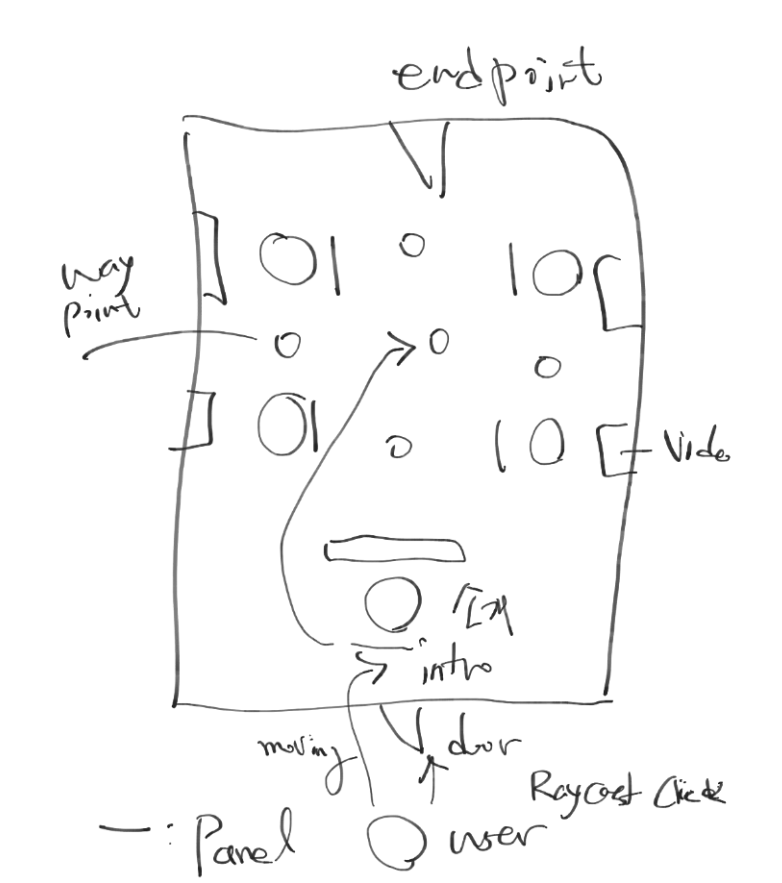 endpoint
way
point
Video
intro
moving
door
Raycast Click
— : Panel
user